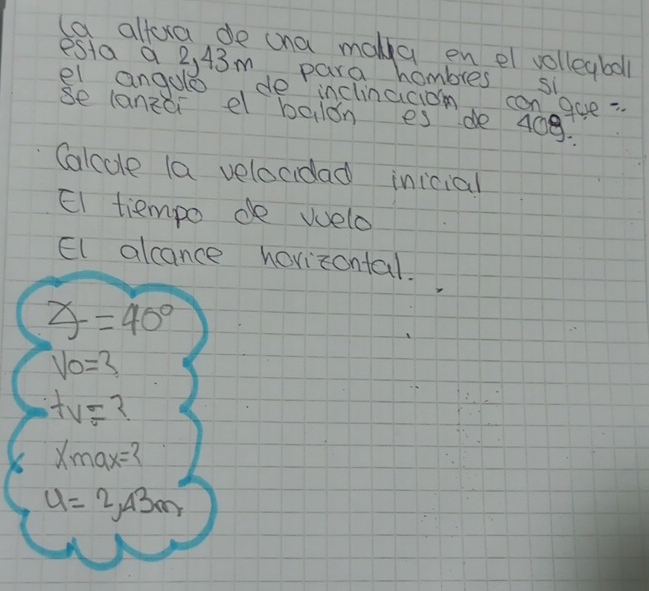 la altura de una malla en el volleyball
esta a 2,43m para hombres si
el angulo de inclinación con que
se lanzó el balón es de 40º.
Calcule la velocidad inicial
El tiempo de vuelo
El alcance horizontal.
∡ = 40º
Vo=?
tv=?
Xmax=?
y= 2,43m